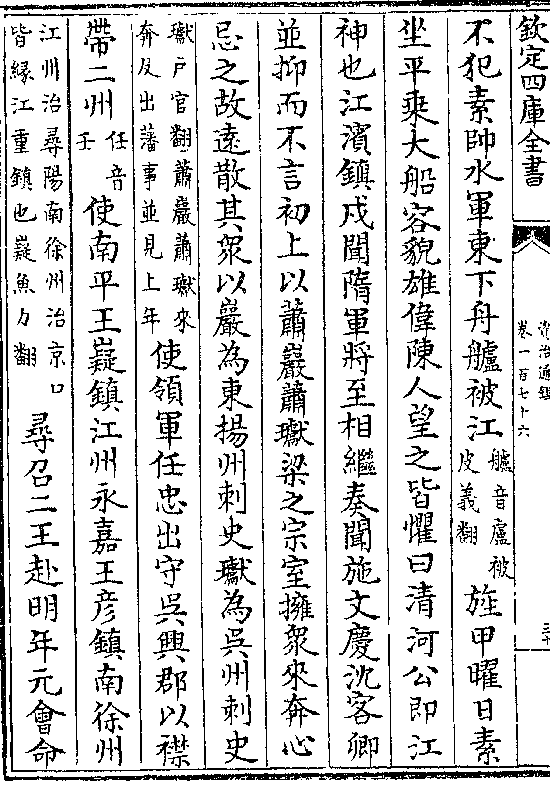 欽定四庫全書
資治通鑑
卷一百七十六
不犯素帥水軍東下舟艫被江艫音盧被皮義翻旌甲曜日素
坐平乗大船容貌雄偉陳人望之皆懼曰清河公即江
神也江濱鎮戍聞隋軍將至相繼奏聞施文慶沈客卿
並抑而不言初上以蕭巖蕭瓛梁之宗室擁衆來奔心
忌之故逺散其衆以巖為東揚州刺史瓛為吳州刺史
瓛戸官翻蕭巖蕭瓛來奔反出藩事並見上年使領軍任忠出守吳興郡以襟
帶二州任音壬使南平王嶷鎮江州永嘉王彦鎮南徐州
江州治尋陽南徐州治京口皆緣江重鎮也嶷魚力翻尋召二王赴明年元會命